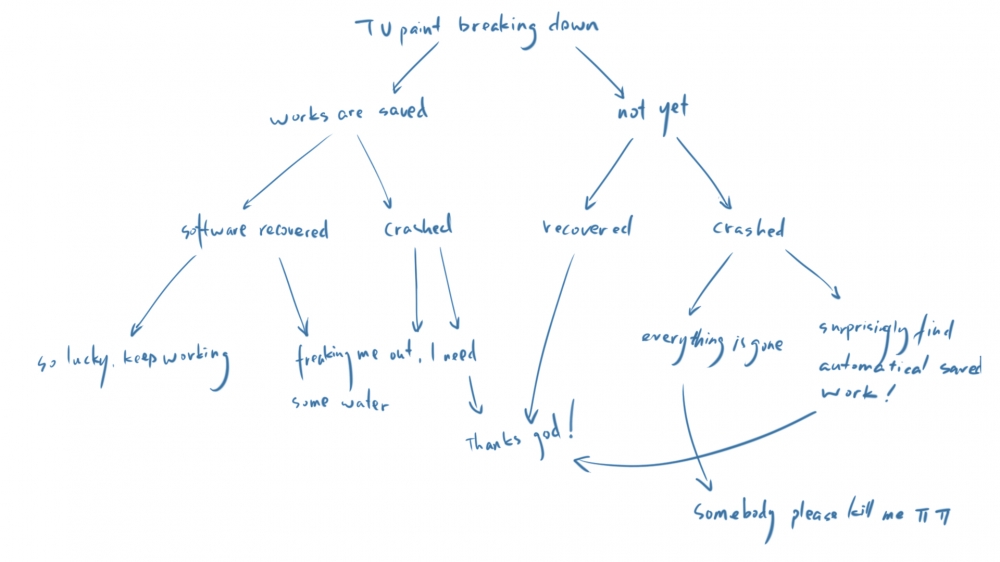 TVpaint breaking down
works are saved
not yet
software recovered
crached
recovered
crashed
so lucky. keep working
freaking me out, I need
some water
everything is gone
surprisigly find
automatical saved
work!
Thanks god!
Somebody please kill me TT TT